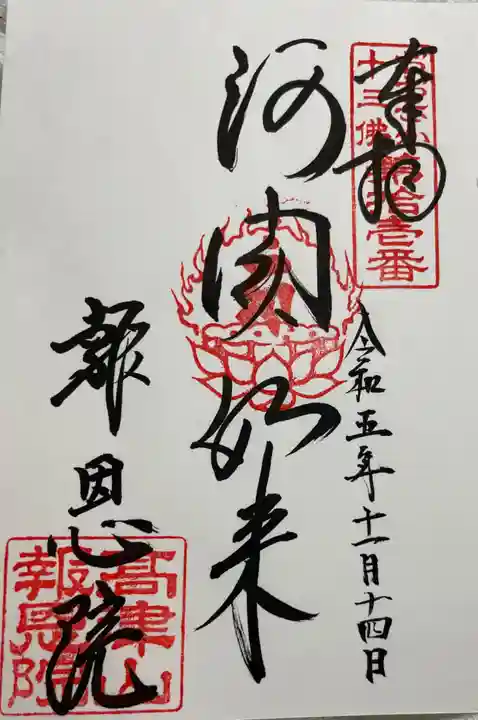 奉拝
十三佛第拾壱番
令和五年十一月十四日
阿閦如来
報恩院
高津山
報恩院